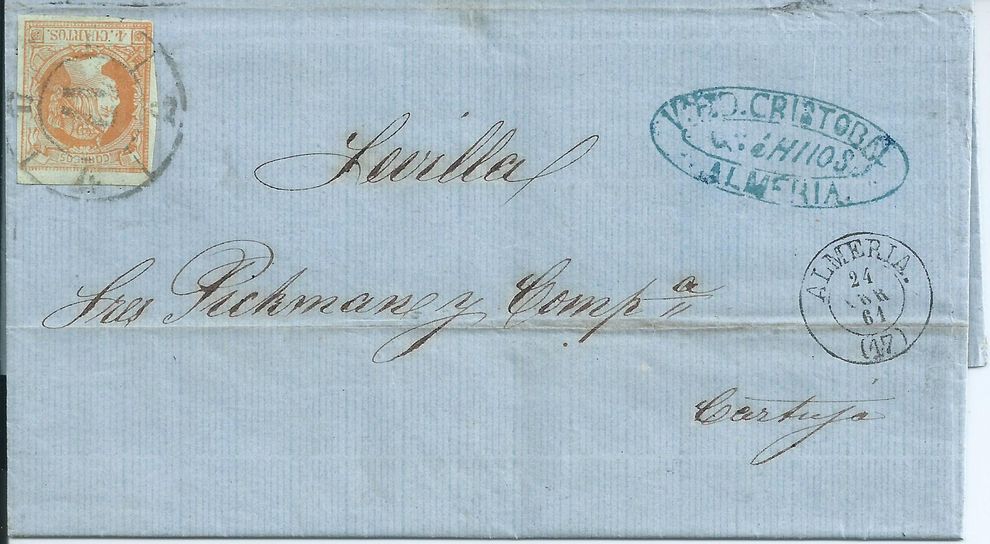 4 CUARTOS.
CORREOS
Sevilla
CRISTOBAL
É HIJOS
ALMERIA.
Sres Pickman y Comp.a
ALMERIA.
24
61
(17)
Cartuja